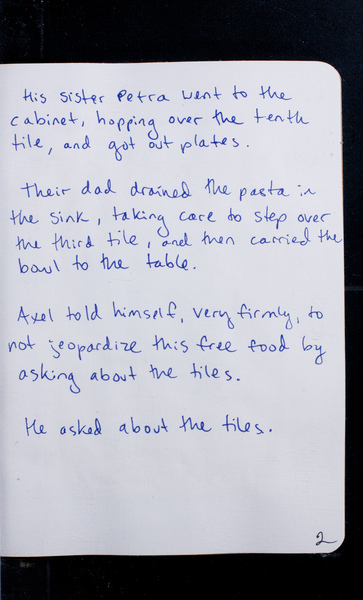 His sister Petra went to the
cabinet, hopping over the tenth
tile, and got out plates.
Their dad drained the pasta in
the sink, taking care to step over
the third tile, and then carried the
bowl to the table.
Axel told himself, very firmly, to
not jeopardize this free food by
asking about the tiles.
He asked about the tiles.
2